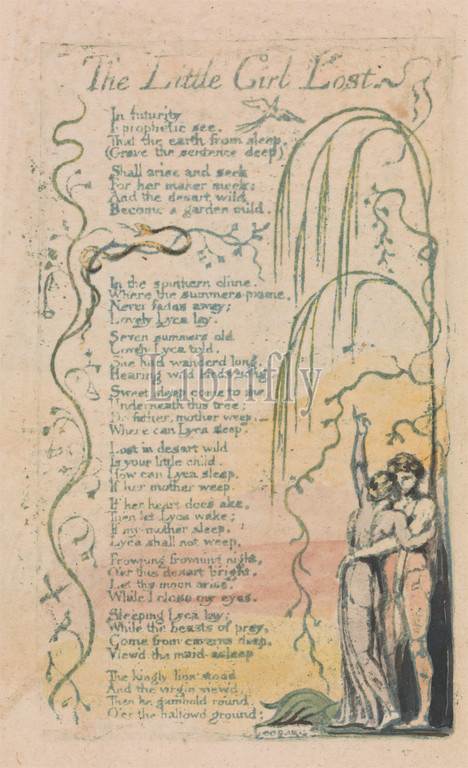 The Little Girl Lost
In futurity
I prophetic see.
That the earth from sleep.
(Grave the sentence deep)
Shall arise and seek
For her maker meek:
And the desart wild
Become a garden mild.
In the southern clime.
Where the summers prime.
Never fades away;
Lovely Lyca lay.
Seven summers old
Lovely Lyca told,
She had wanderd long,
Hearing wild birds song.
Librifly
Sweet sleep come to me
Underneath this tree;
Do father, mother weep,
Where can Lyca sleep
Lost in desart wild
Is your little child
How can Lyca sleep.
If her mother weep.
If her heart does ake.
Then let Lyca wake;
If my mother sleep,
Lyca shall not weep.
Frowning frowning night,
O'er this desart bright.
Let thy moon arise,
While I close my eyes.
Sleeping Lyca lay;
While the beasts of prey,
Come from caverns deep,
View'd the maid asleep
The kingly lion stood
And the virgin view'd,
Then he gambold round.
O'er the hallowd ground;